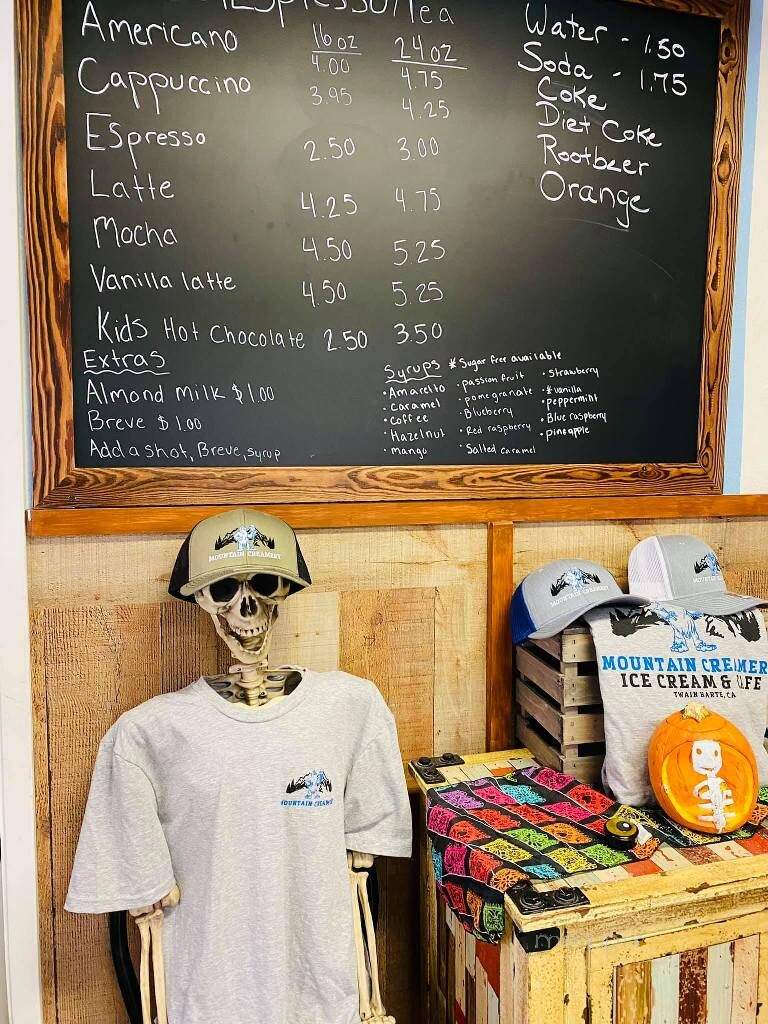 Espresso/Tea
16oz 24oz
Americano 4.00 4.75
Cappuccino 3.95 4.25
Espresso 2.50 3.00
Latte 4.25 4.75
Mocha 4.50 5.25
Vanilla latte 4.50 5.25
Kids Hot Chocolate 2.50 3.50
Water - 1.50
Soda - 1.75
Coke
Diet Coke
Rootbeer
Orange
Extras
Almond milk $1.00
Breve $1.00
Add a shot, Breve, syrup
Syrups *Sugar free available
• Amaretto
• Caramel
• coffee
• Hazelnut
• mango
• passion fruit
• pomegranate
• Blueberry
• Red raspberry
• Salted caramel
• strawberry
• *vanilla
• peppermint
• Blue raspberry
• pineapple
MOUNTAIN CREAMERY
MOUNTAIN CREAMERY
MOUNTAIN
MOUNTAIN CREAMER
ICE CREAM & CAFE
TWAIN HARTE, CA
MOUNTAIN CREAMERY